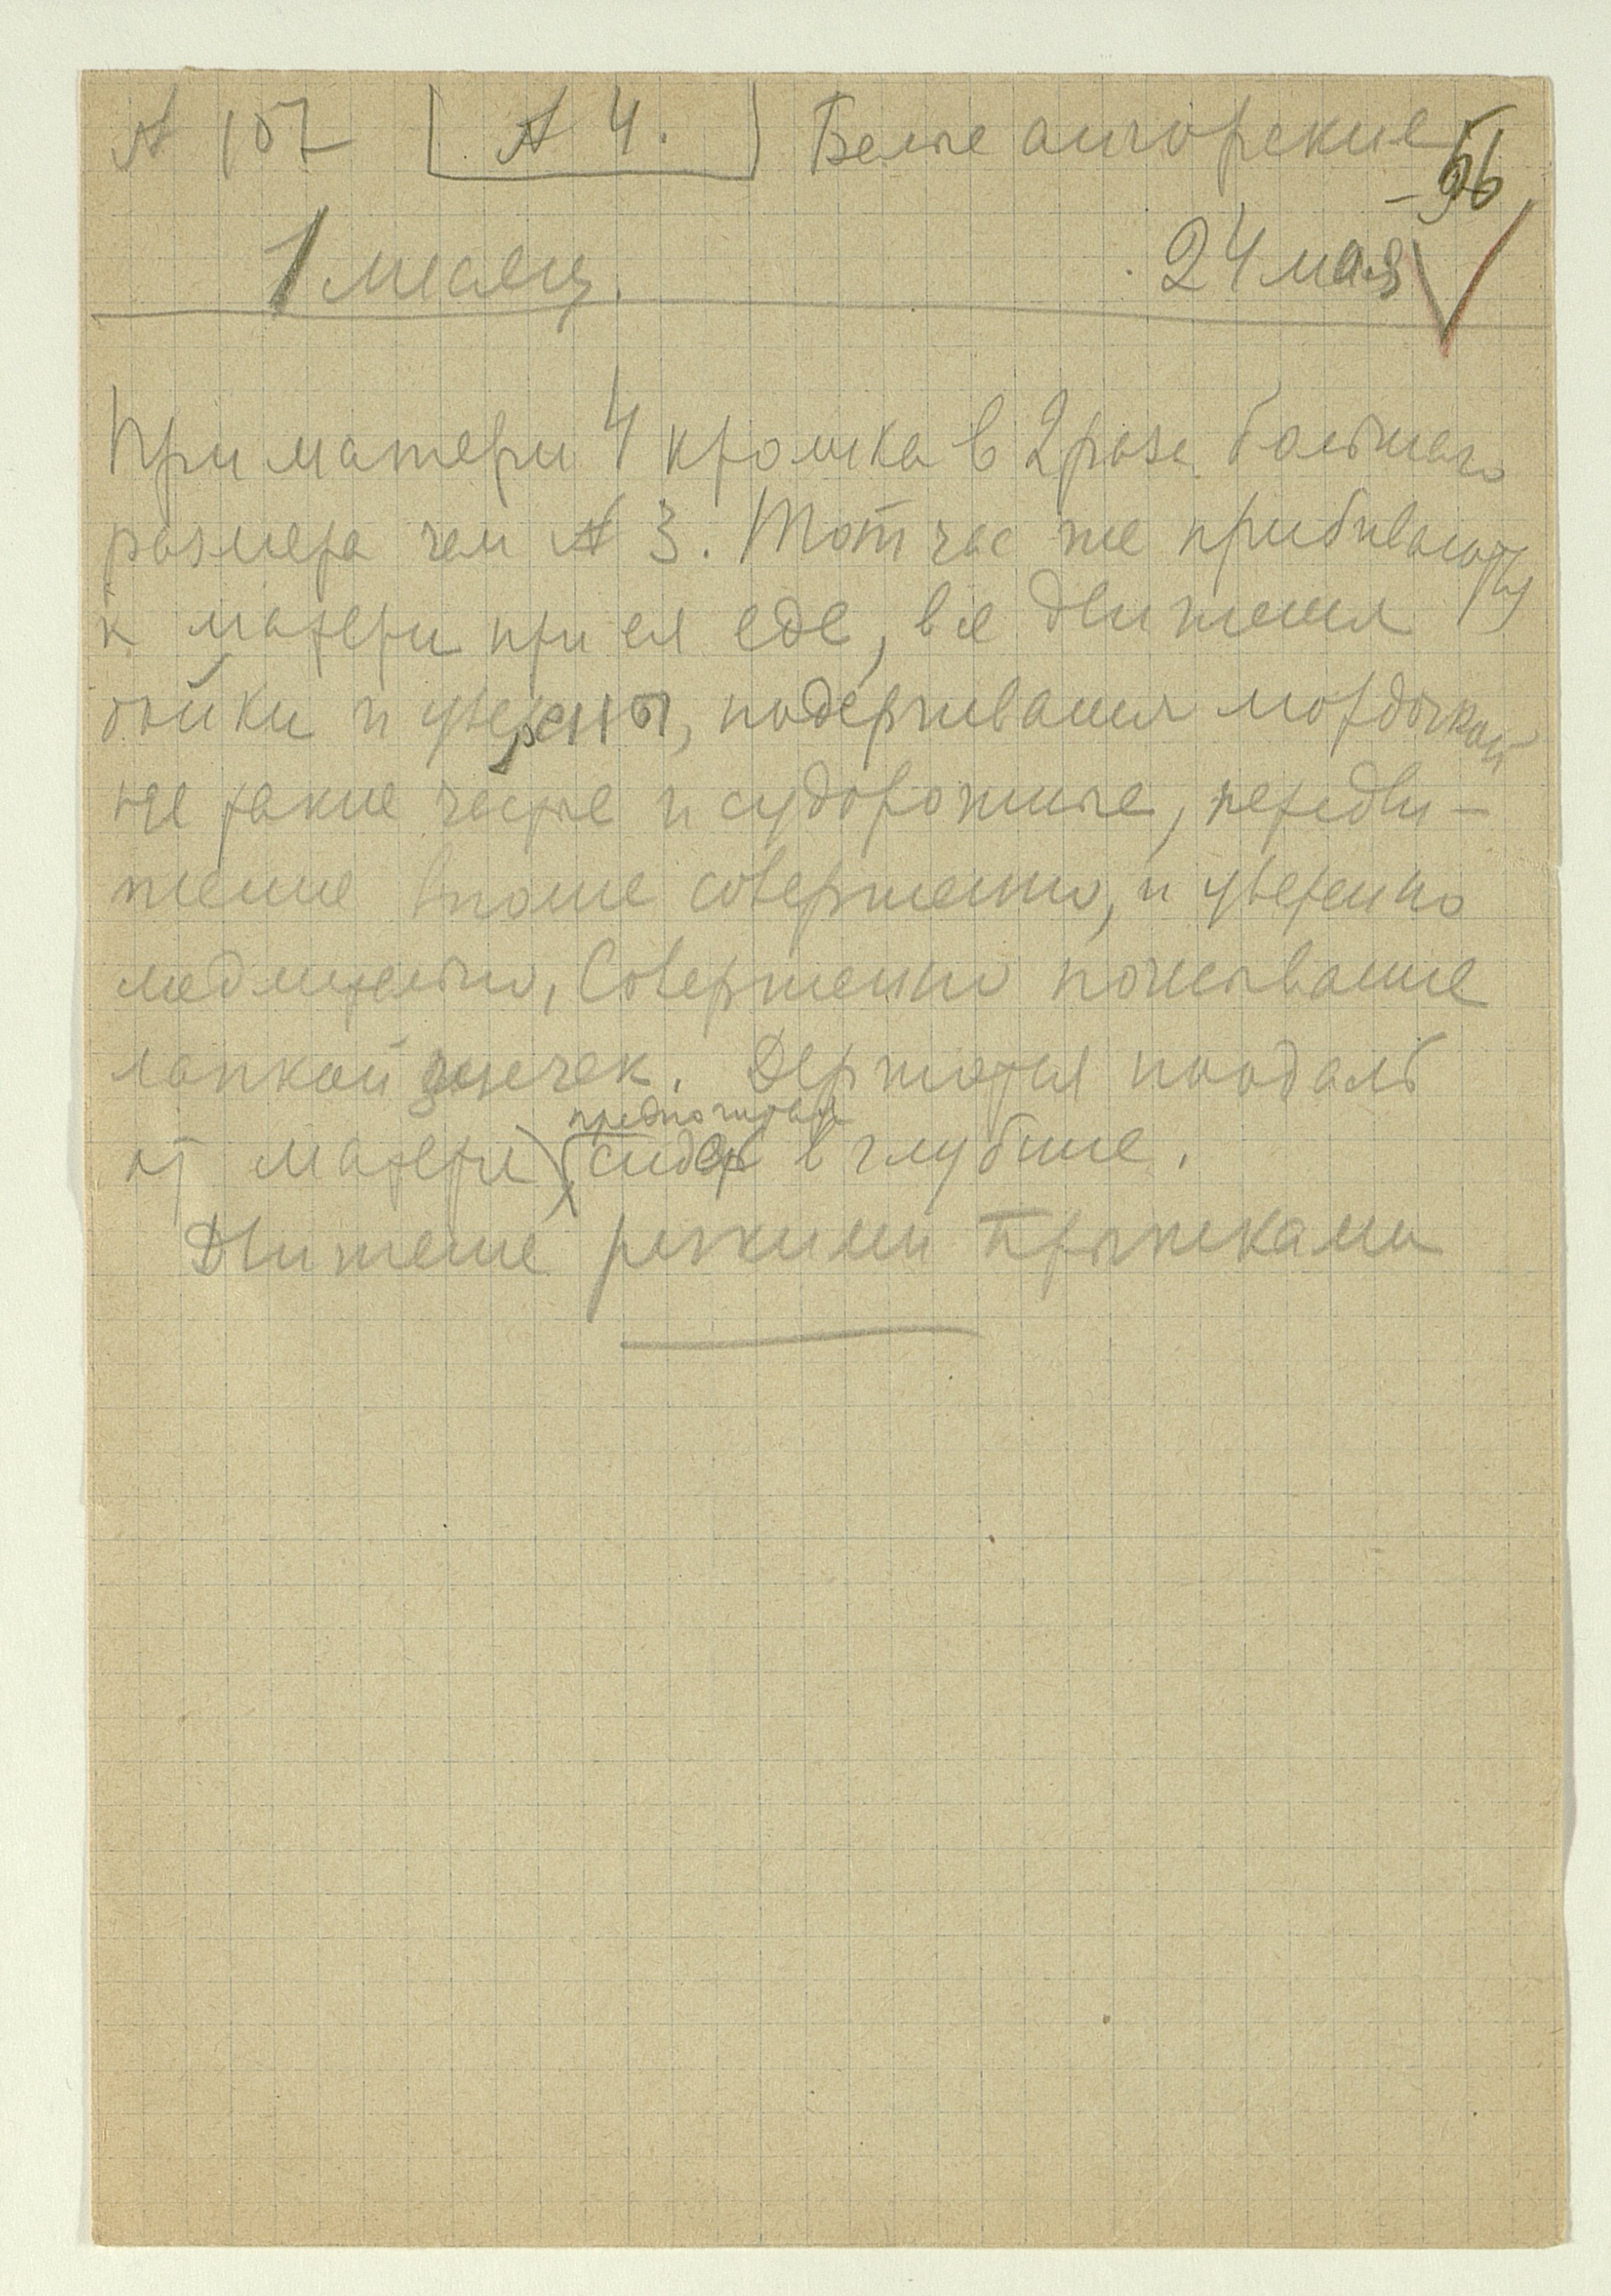 № 107 № 4. Белые ангорские
56
1 месяц. 24 мая
При матери 4 крошка в 2 раза большаго
размера чем № 3. Тотчас же прибиваются
к матери при ея еде, все движения
бойки и уверены, подергивания мордочкой
не такие частые и судорожные, передви-
жение вполне совершенно, и уверенно
медлительно, Совершенно почесывание
лапкой. Держатся поодаль
от матери, предпочитая
сидеть в глубине.
Движение резкими прыжками